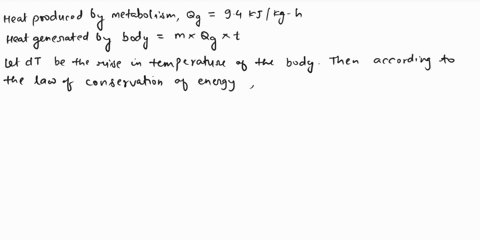 Heat produced by metabolism, Qg = 9.4 kJ/kg-h
Heat generated by body = m × Qg × t
Let dT be the rise in temperature of the body. Then according to
the law of conservation of energy ,